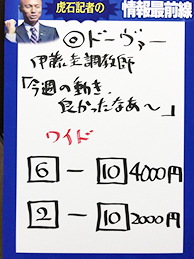 虎石記者の
情報最前線
◎ドーヴァー
伊藤圭調教師
「今週の動き、
良かったなあ〜」
ワイド
6 − 10 4000円
2 − 10 2000円